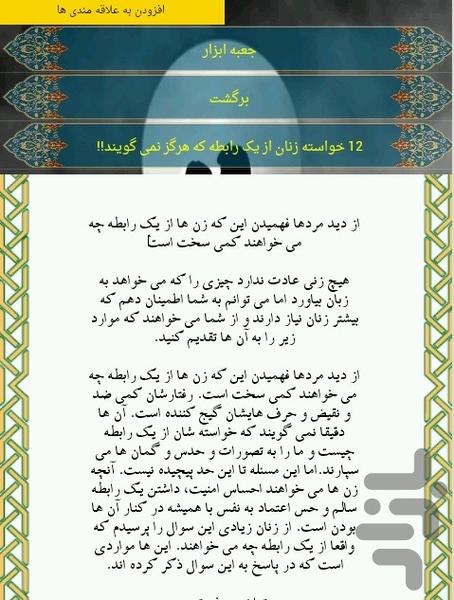 افزودن به علاقه مندی ها
جعبه ابزار
برگشت
12 خواسته زنان از یک رابطه که هرگز نمی گویند!!
از دید مردها فهمیدن این که زن ها از یک رابطه چه
می خواهند کمی سخت است!
هیچ زنی عادت ندارد چیزی را که می خواهد به
زبان بیاورد اما می توانم به شما اطمینان دهم که
بیشتر زنان نیاز دارند و از شما می خواهند که موارد
زیر را به آن ها تقدیم کنید.
از دید مردها فهمیدن این که زن ها از یک رابطه چه
می خواهند کمی سخت است. رفتارشان کمی ضد
و نقیض و حرف هایشان گیج کننده است. آن ها
دقیقا نمی گویند که خواسته شان از یک رابطه
چیست و ما را به تصورات و حدس و گمان ها می
سپارند. اما این مسئله تا این حد پیچیده نیست. آنچه
زن ها می خواهند احساس امنیت، داشتن یک رابطه
سالم و حس اعتماد به نفس با همیشه در کنار آن ها
بودن است. از زنان زیادی این سوال را پرسیدم که
واقعا از یک رابطه چه می خواهند. این ها مواردی
است که در پاسخ به این سوال ذکر کرده اند.
بازار